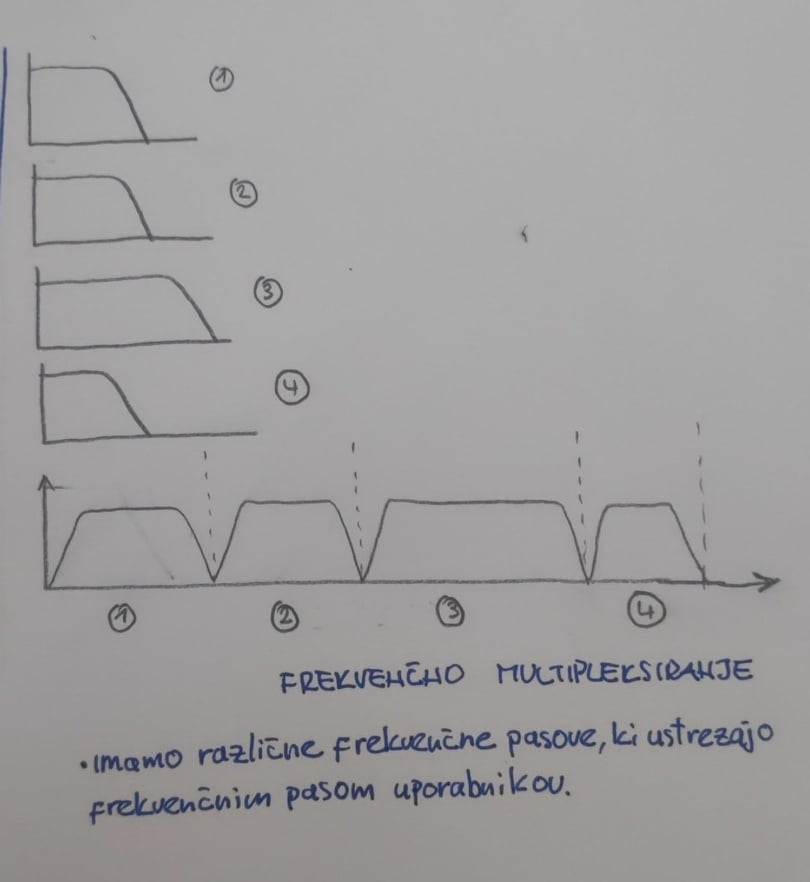 ①
②
③
④
① ② ③ ④
FREKVENČNO MULTIPLEKSIRANJE
• Imamo različne frekvenčne pasove, ki ustrezajo
frekvenčnim pasom uporabnikov.